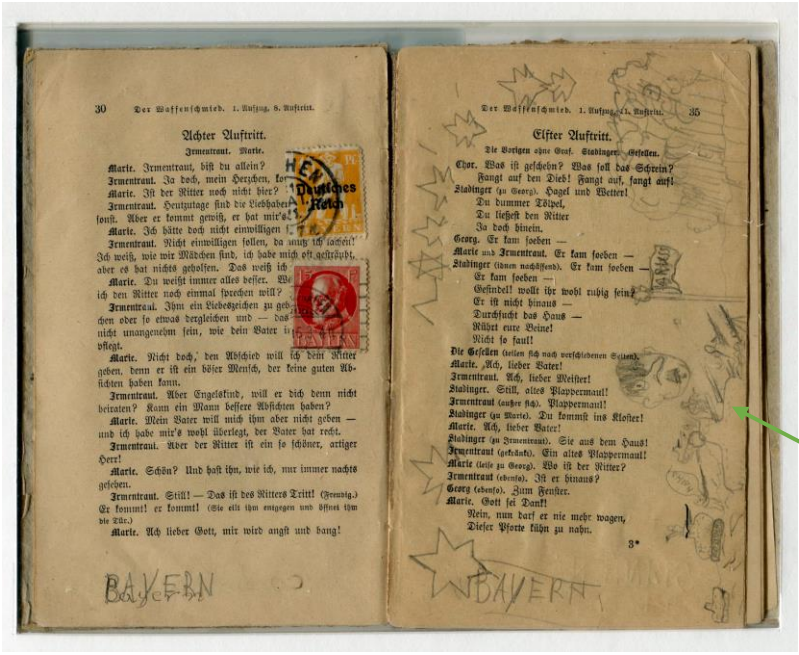 30 Der Waffenschmied. 1. Aufzug, 8. Auftritt.
Achter Auftritt.
Irmentraut. Marie.
Marie. Irmentraut, bist du allein?
Irmentraut. Ja doch, mein Herzchen, ko
Marie. Ist der Ritter noch nicht hier?
Irmentraut. Heutzutage sind die Liebhaber
sonst. Aber er kommt gewiß, er hat mir's
Marie. Ich hätte doch nicht einwilligen
Irmentraut. Nicht einwilligen sollen, da muß ich lachen!
Ich weiß, wie wir Mädchen sind, ich habe mich oft gesträubt,
aber es hat nichts geholfen. Das weiß ich
Marie. Du weißt immer alles besser. We
ich den Ritter noch einmal sprechen will?
Irmentraut. Ihm ein Liebeszeichen zu geb
chen oder so etwas dergleichen und — das
nicht unangenehm sein, wie dein Vater i
pflegt.
Marie. Nicht doch, den Abschied will ich dem Ritter
geben, denn er ist ein böser Mensch, der keine guten Ab-
sichten haben kann.
Irmentraut. Aber Engelskind, will er dich denn nicht
heiraten? Kann ein Mann bessere Absichten haben?
Marie. Mein Vater will mich ihm aber nicht geben —
und ich habe mir's wohl überlegt, der Vater hat recht.
Irmentraut. Aber der Ritter ist ein so schöner, artiger
Herr!
Marie. Schön? Und hast ihn, wie ich, nur immer nachts
gesehen.
Irmentraut. Still! — Das ist des Ritters Tritt! (Freudig.)
Er kommt! er kommt! (Sie eilt ihm entgegen und öffnet ihm
die Tür.)
Marie. Ach lieber Gott, mir wird angst und bang!
BAYERN
HEN
Deutsches
Reich
BAYERN
Der Waffenschmied. 1. Aufzug, 11. Auftritt. 35
Elfter Auftritt.
Die Vorigen ohne Graf. Stadinger. Gesellen.
Chor. Was ist geschehn? Was soll das Schrein?
Fangt auf den Dieb! Fangt auf, fangt auf!
Stadinger (zu Georg). Hagel und Wetter!
Du dummer Tölpel,
Du ließest den Ritter
Ja doch hinein.
Georg. Er kam soeben —
Marie und Irmentraut. Er kam soeben —
Stadinger (ihnen nachäffend). Er kam soeben —
Er kam soeben —
Gesindel! wollt ihr wohl ruhig sein?
Er ist nicht hinaus —
Durchsucht das Haus —
Rührt eure Beine!
Nicht so faul!
Die Gesellen (teilen sich nach verschiedenen Seiten).
Marie. Ach, lieber Vater!
Irmentraut. Ach, lieber Meister!
Stadinger. Still, altes Plappermaul!
Irmentraut (außer sich). Plappermaul!
Stadinger (zu Marie). Du kommst ins Kloster!
Marie. Ach, lieber Vater!
Stadinger (zu Irmentraut). Sie aus dem Haus!
Irmentraut (gekränkt). Ein altes Plappermaul!
Marie (leise zu Georg). Wo ist der Ritter?
Irmentraut (ebenso). Ist er hinaus?
Georg (ebenso). Zum Fenster.
Marie. Gott sei Dank!
Nein, nun darf er nie mehr wagen,
Dieser Pforte kühn zu nahn.
3*
BAYERN